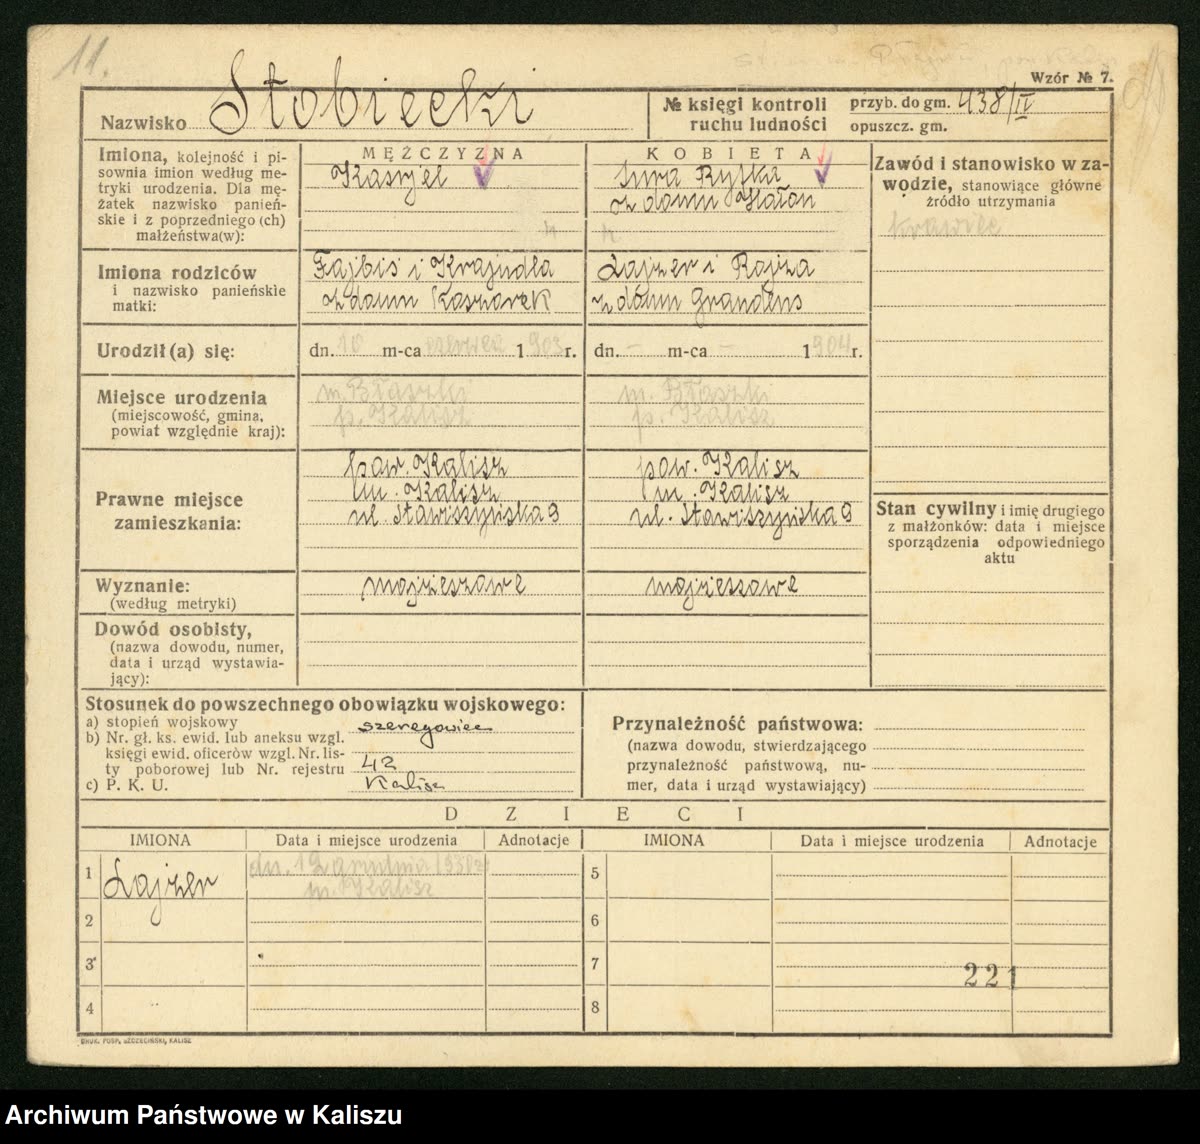 11.
Wzór № 7.
Nazwisko Stobiecki
№ księgi kontroli ruchu ludności
przyb. do gm. 438/IV
opuszcz. gm.
Imiona, kolejność i pi-
sownia imion według me-
tryki urodzenia. Dla mę-
żatek nazwisko panień-
skie i z poprzedniego (ch)
małżeństwa(w):
MĘŻCZYZNA
Kasryel
KOBIETA
Sura Ryfka
z domu Hałan
Zawód i stanowisko w za-
wodzie, stanowiące główne
źródło utrzymania
krawiec
Imiona rodziców
i nazwisko panieńskie
matki:
Fajbiś i Krajndla
z domu Kaszarek
Lajzer i Rajza
z domu Grandens
Urodził(a) się:
dn. 10 m-ca czerwca 1903 r.
dn. - m-ca - 1904 r.
Miejsce urodzenia
(miejscowość, gmina,
powiat względnie kraj):
m. Błaszki
p. Kalisz
m. Błaszki
p. Kalisz
Prawne miejsce
zamieszkania:
pow. Kalisz
m. Kalisz
ul. Stawiszyńska 9
pow. Kalisz
m. Kalisz
ul. Stawiszyńska 9
Stan cywilny i imię drugiego
z małżonków: data i miejsce
sporządzenia odpowiedniego
aktu
Wyznanie:
(według metryki)
mojżeszowe
mojżeszowe
Dowód osobisty,
(nazwa dowodu, numer,
data i urząd wystawia-
jący):
Stosunek do powszechnego obowiązku wojskowego:
a) stopień wojskowy szeregowiec
b) Nr. gł. ks. ewid. lub aneksu wzgl.
księgi ewid. oficerów wzgl. Nr. lis-
ty poborowej lub Nr. rejestru 42
c) P. K. U. Kalisz
Przynależność państwowa:
(nazwa dowodu, stwierdzającego
przynależność państwową, nu-
mer, data i urząd wystawiający)
DZIECI
IMIONA Data i miejsce urodzenia Adnotacje IMIONA Data i miejsce urodzenia Adnotacje
1 Lajzer dn. 12 grudnia 1938 r.
m. Kalisz
5
2 6
3 7
221
4 8
DRUK. POSP. SZCZECIŃSKI, KALISZ
Archiwum Państwowe w Kaliszu